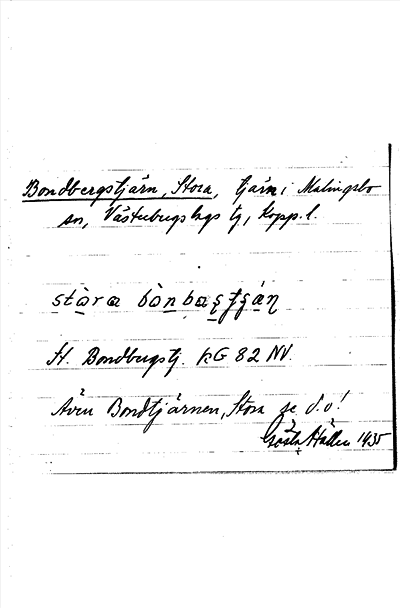 Bondbergstjärn, Stora, tjärn i Malingsbo
sn, Västerbergslags tg, Kopp. l.
stàra bònbaʂtʂán
St. Bondbergstj. kG 82 NV.
Även Bondtjärnen, Stora se d.o!
Gösta Hallen 1935